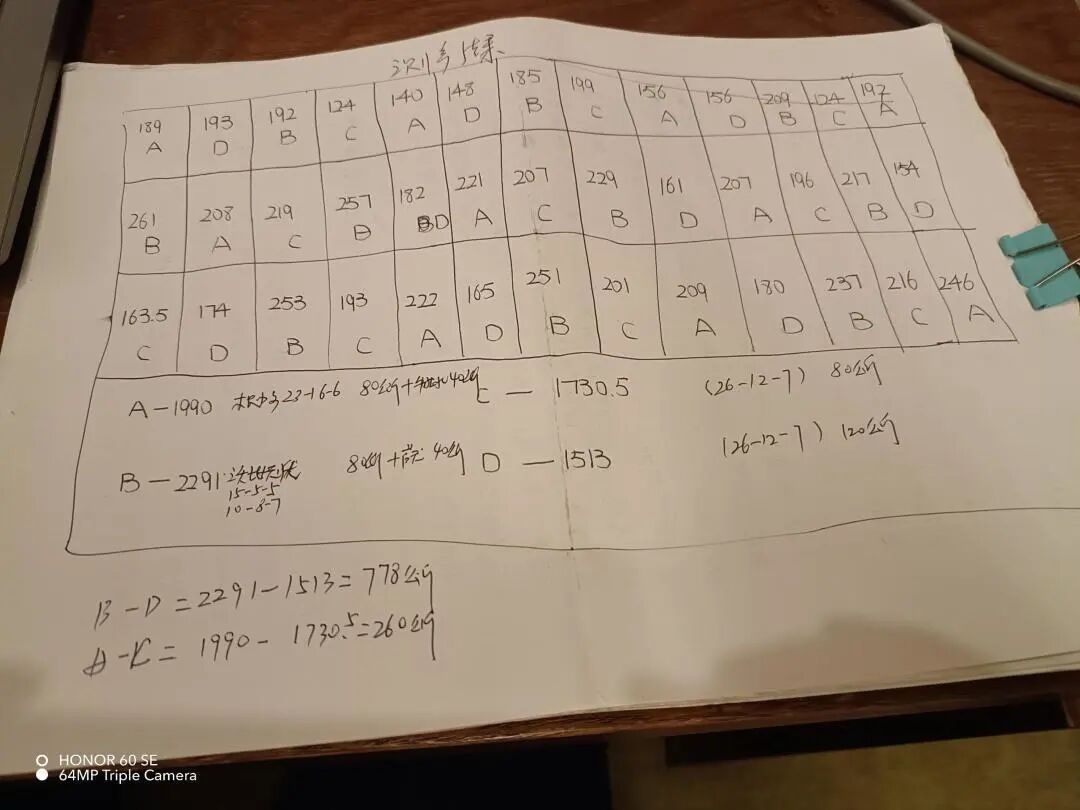 189 193 192 124 140 148 185 199 156 156 209 124 192
A D B C A D B C A D B C A
261 208 219 257 182 221 207 229 161 207 196 217 154
B A C D BD A C B D A C B D
163.5 174 253 193 222 165 251 201 209 180 237 216 246
C D B C A D B C A D B C A
A-1990 23-16-6 80公斤+ 40公斤 C — 1730.5 (26-12-7) 80公斤
B-2291 80公斤+ 40公斤 D — 1513 (26-12-7) 120公斤
15-5-5
10-8-7
B-D=2291-1513=778公斤
A-C= 1990- 1730.5=260公斤
HONOR 60 SE
64MP Triple Camera